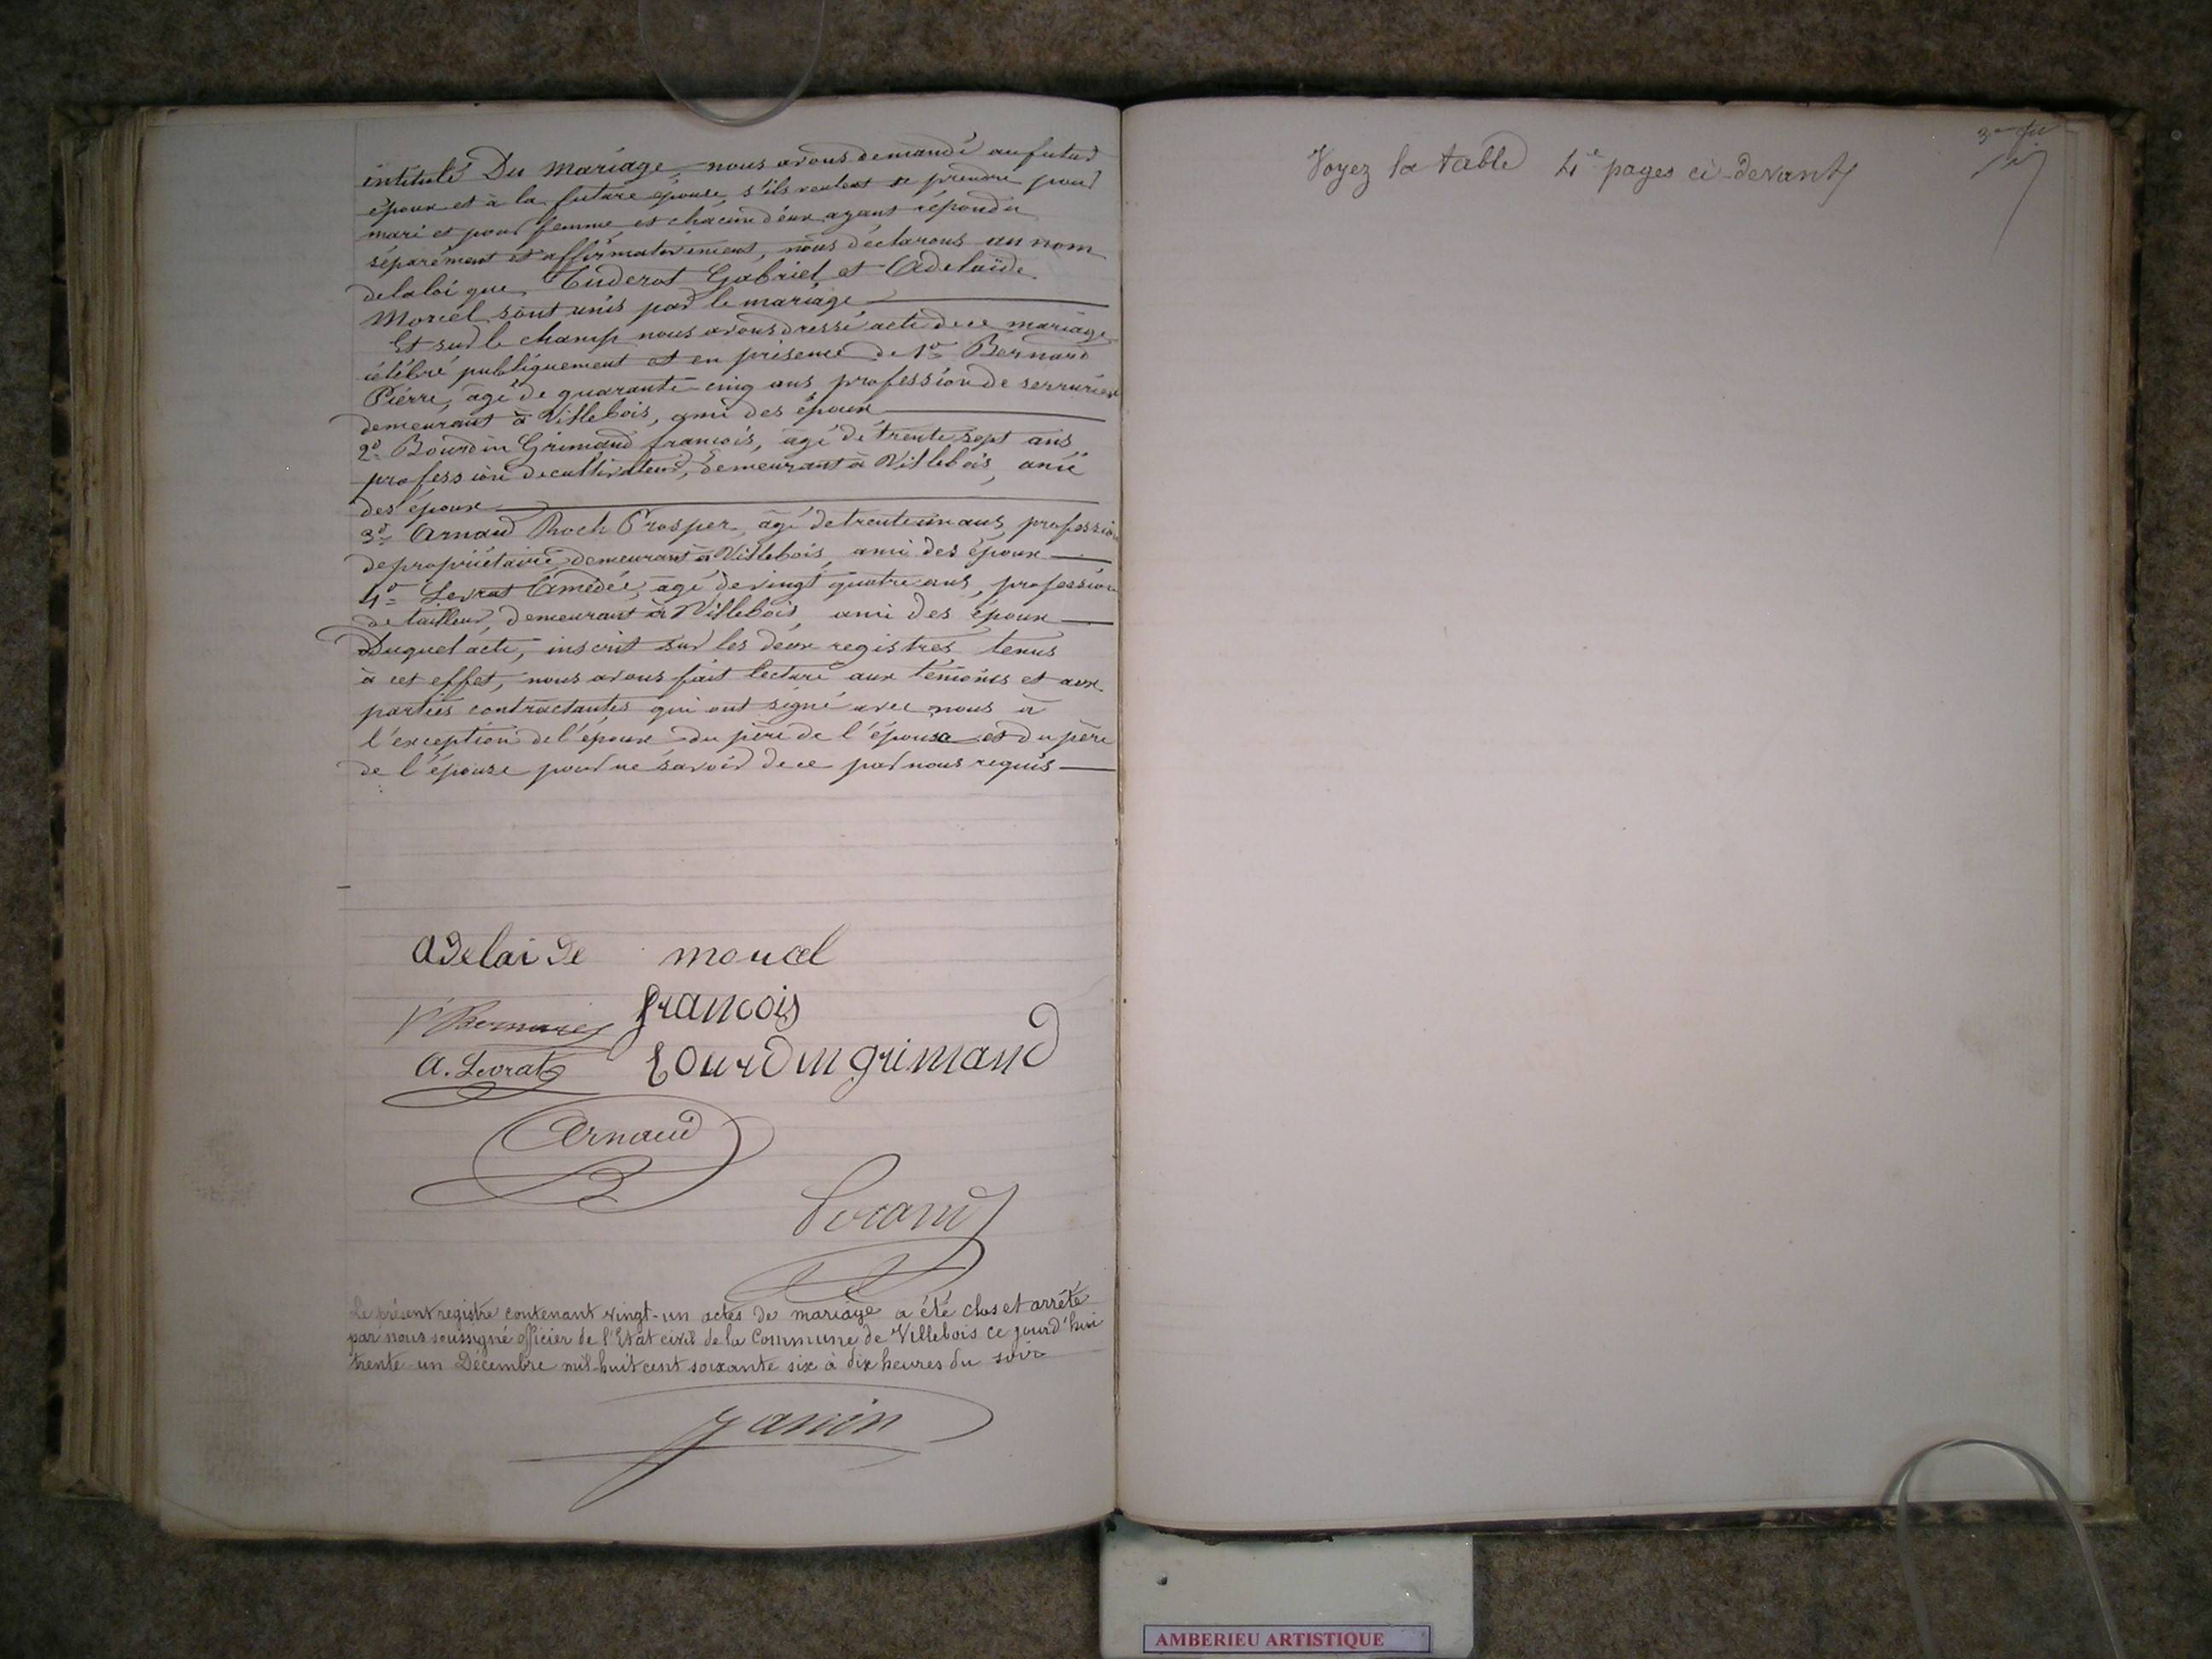 intitulé Du Mariage, nous avons demandé au futur
époux et à la future épouse, s'ils veulent se prendre pour
mari et pour femme et chacun d'eux ayant répondu
séparément et affirmativement, nous déclarons au nom
de la loi que Tuderot Gabriel et Adelaïde
Morcel sont unis par le mariage
Et sur le champ nous avons dressé acte de ce mariage
célébré publiquement et en présence de 1º Bernard
Pierre, agé de quarante-cinq ans, profession de serrurier
demeurant à Villebois, ami des époux
2º Bourdin Grimaud françois, agé de trente sept ans
profession de cultivateur, demeurant à Villebois, ami
des époux
3º Arnaud Roch Prosper, agé de trente un ans, profession
de propriétaire, demeurant à Villebois, ami des époux
4º Levrat Amédée, agé de vingt quatre ans, profession
de tailleur, demeurant à Villebois, ami des époux
Duquel acte, inscrit sur les deux registres tenus
à cet effet, nous avons fait lecture aux témoins et aux
parties contractantes qui ont signé avec nous à
l'exception de l'époux du père de l'épouse et du père
de l'épouse pour ne savoir de ce par nous requis
adelaide morcel
françois
P. Bernard
A. Levrat
bourdin grimaud
Arnaud
Le présent registre contenant vingt-un actes de mariage a été clos et arrêté
par nous soussigné officier de l'Etat civil de la Commune de Villebois ce jourd'hui
trente-un Décembre mil-huit cent soixante six à dix heures du soir
Janin
Voyez la table 4e pages ci-devant
AMBERIEU ARTISTIQUE